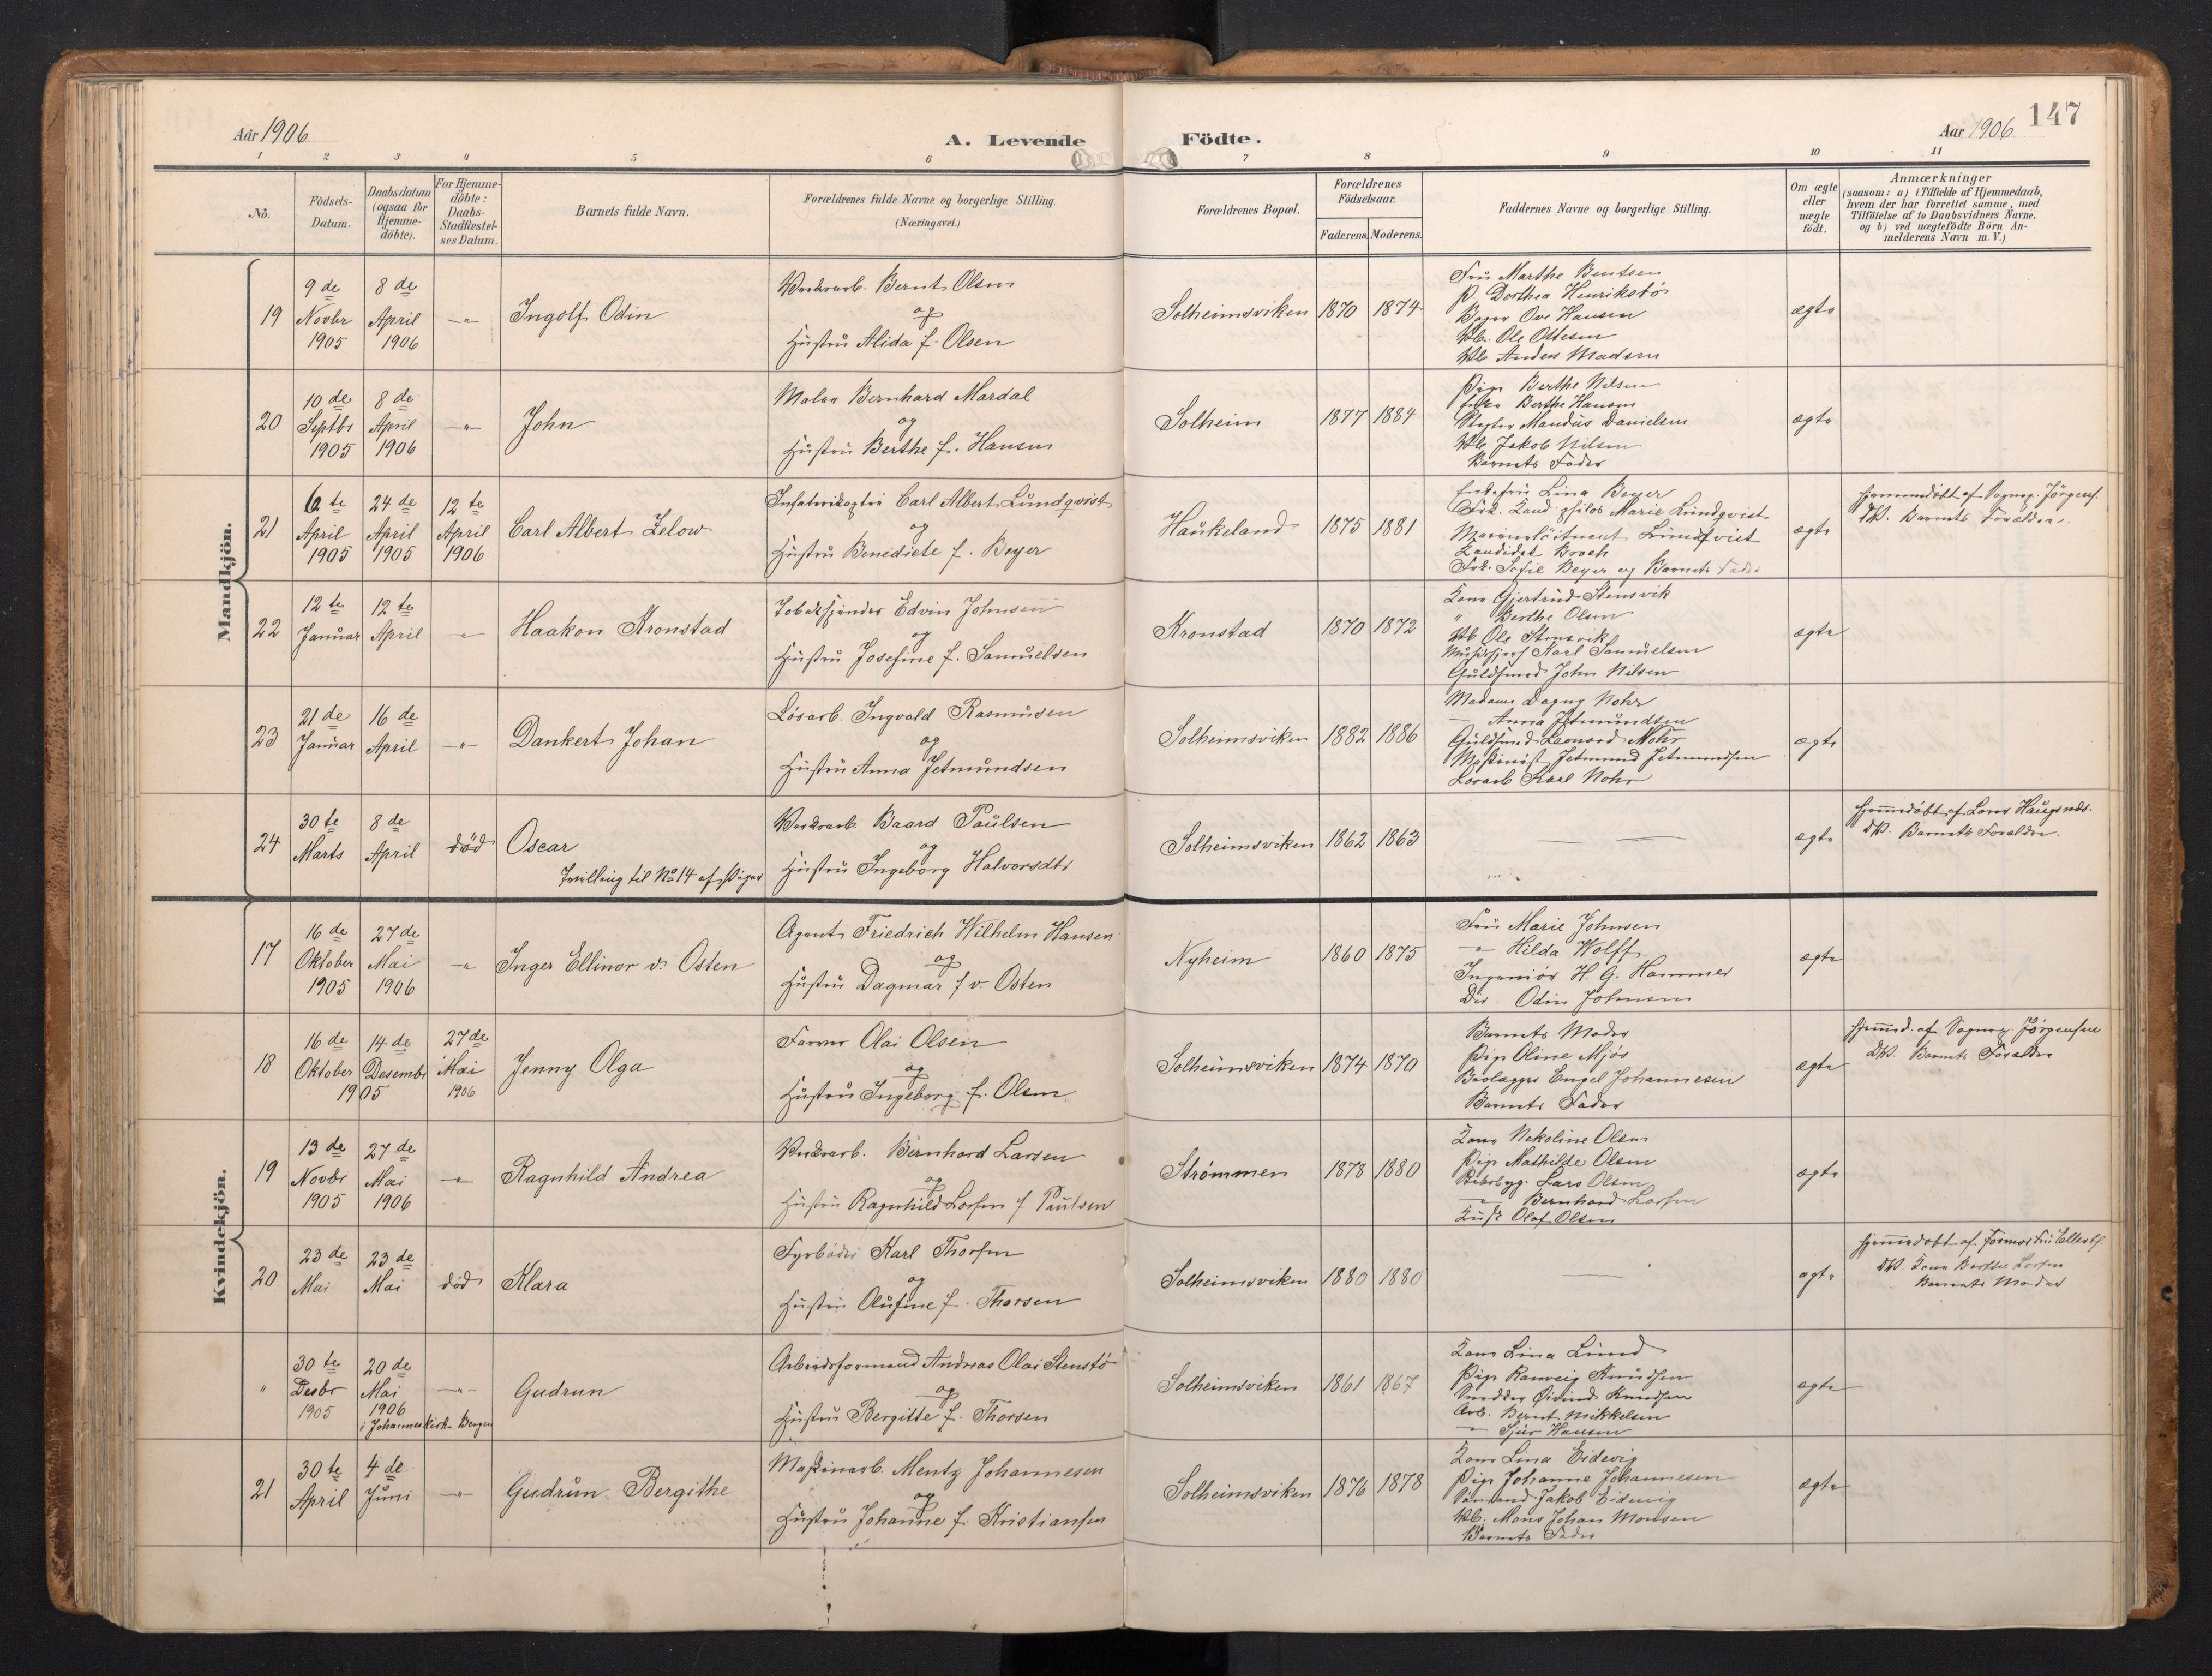 Aår 1906
A. Levende
Födte.
Aar 1906
147
1 2 3 4 5 6 7 8 9 10 11
Nö.
Födsels-
Datum.
Daabsdatum
(ogsaa for
Hjemme-
döbte).
For Hjemme-
döbte:
Daabs-
Stadfæstel-
ses Datum.
Barnets fulde Navn.
Forældrenes fulde Navne og borgerlige Stilling.
(Næringsvei.)
Forældrenes Bopæl.
Forældrenes
Födselsaar.
Faderens. Moderens.
Faddernes Navne og borgerlige Stilling.
Om ægte
eller
uægte
födt.
Anmærkninger
(saasom: a) i Tilfælde af Hjemmedaab,
hvem der har forrettet samme, med
Tilföielse af to Daabsvidners Navne.
og b) ved uægtefödte Börn An-
melderens Navn m.V.)
Mandkjön.
19
9 de
Novbr
1905
8 de
April
1906
-"-
Ingolf Odin
Verkarb. Bernt Olsen
og
Hustru Alida f. Olsen
Solheimsviken
1870 1874
Fru Marthe Bentsen
P. Dorthea Henriksbö
Bager Ove Hansen
Vb. Ole Ottesen
Vb Anders Madsen
ægte
20
10 de
Septbr
1905
8 de
April
1906
-"-
John
Maler Bernhard Mardal
og
Hustru Berthe f. Hansen
Solheim
1877 1884
Pige Berthe Nilsen
Enke Berthe Hansen
Mandus Danielsen
Vb Jakob Nilsen
Barnets Fader
ægte
21
6 te
April
1905
24 de
April
1905
12 te
April
1906
Carl Albert Zelow
Infanterikaptei Carl Albert Lundqvist
og
Hustru Benedicte f. Beyer
Haukeland
1875 1881
Enkefru Lina Beyer
Frk. Kand philos Marie Lundqvist
Marineløitnant Lundqvist
Kandidat Broch
Frk. Sofie Beyer og Barnets Fader
ægte
hjemmedöbt af Sognep. Jörgens.
DV. Barnets Forældre.
22
12 te
Januar
12 te
April
-"-
Haakon Kronstad
Tobakspinder Edvin Johnsen
og
Hustru Josefine f. Samuelsen
Kronstad
1870 1872
Kone Gjertrud Stensvik
" Berthe Olsen
Vb Ole Stensvik
Karl Samuelsen
Guldsmed John Nilsen
ægte
23
21 de
Januar
16 de
April
-"-
Dankert Johan
Løsarb. Ingvald Rasmusen
og
Hustru Anna Jetmundsen
Solheimsviken
1882 1886
Madame Dagny Nohr
— Anna Jetmundsen
Guldsmed Leonard Nohr
Maskinist Jetmund Jetmundsen
Løsarb Karl Nohr
ægte
24
30 te
Marts
8 de
April
död
Oscar
Tvilling til No 14 af Piger
Verkarb. Baard Paulsen
og
Hustru Ingeborg Halvorsdtr
Solheimsviken
1862 1863
— —
ægte
hjemmedöbt af Lars Haugsnæs.
DV. Barnets Forældre.
Kvindekjön.
17
16 de
Oktober
1905
27 de
Mai
1906
-"-
Inger Ellinor v. Osten
Agent Friedrich Wilhelm Hansen
og
Hustru Dagmar f v. Osten
Nyheim
1860 1875
Fru Marie Johnsen
-"- Hilda Wolff
Ingeniör H. G. Hammer
Dir. Odin Johnsen
ægte
18
16 de
Oktober
14 de
Desembr
1905
27 de
Mai
1906
Jenny Olga
Farver Olai Olsen
og
Hustru Ingeborg f. Olsen
Solheimsviken
1874 1870
Barnets Moder
Pige Oline Mjös
Brolægger Engel Johannesen
Barnets Fader
ægte
hjemmed. af Sognep. Jörgensen
DV. Barnets Forældre
19
13 de
Novbr
1905
27 de
Mai
1906
-"-
Ragnhild Andrea
Verkarb. Bernhard Larsen
og
Hustru Ragnhild Larsen f Paulsen
Strömmen
1878 1880
Kone Nekoline Olsen
Pige Mathilde Olsen
Lars Olsen
— Bernhard Larsen
Kusk Olaf Olsen
ægte
20
23 de
Mai
23 de
Mai
död
Klara
Fyrböder Karl Thorsen
og
Hustru Olufine f. Thorsen
Solheimsviken
1880 1880
—
ægte
hjemmedöbt af Jormor
DV. Kone Berthe Larsen
Barnets Moder
"
30 te
Desbr
1905
20 de
Mai
1906
i Johanneskirk. Bergen
-"-
Gudrun
Arbeidsformand Andreas Olai Stenstö
og
Hustru Bergitte f. Thorsen
Solheimsviken
1861 1867
Kone Lina Lund
Pige Ranveig Knudsen
Snedker Öivind Knudsen
Arb. Bernt Mikkelsen
-"- Sjur Hansen
ægte
21
30 te
April
4 de
Juni
-"-
Gudrun Bergithe
Maskinarb. Mentz Johannesen
og
Hustru Johanne f. Kristiansen
Solheimsviken
1876 1878
Kone Lina Eidevig
Pige Johanne Johannesen
Sömand Jakob Eidevig
Vb. Mons Johan Monsen
Barnets Fader
ægte